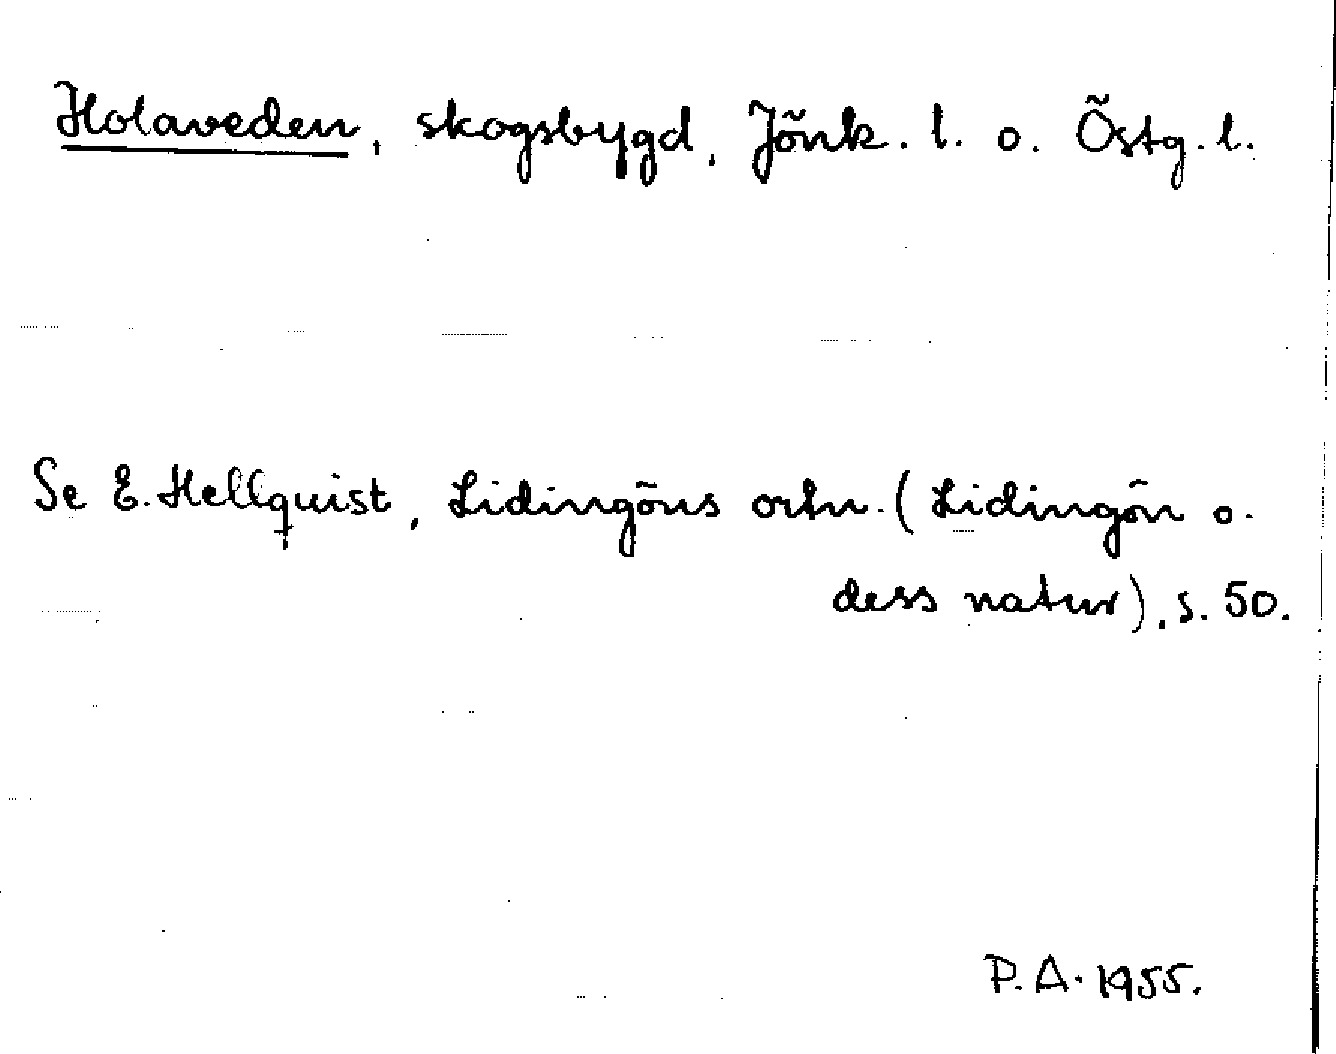 Holaveden, skogsbygd, Jönk. l. o. Östg. l.
Se E. Hellquist, Lidingöns ortn. (Lidingön o.
dess natur), s. 50.
P. A. 1955.